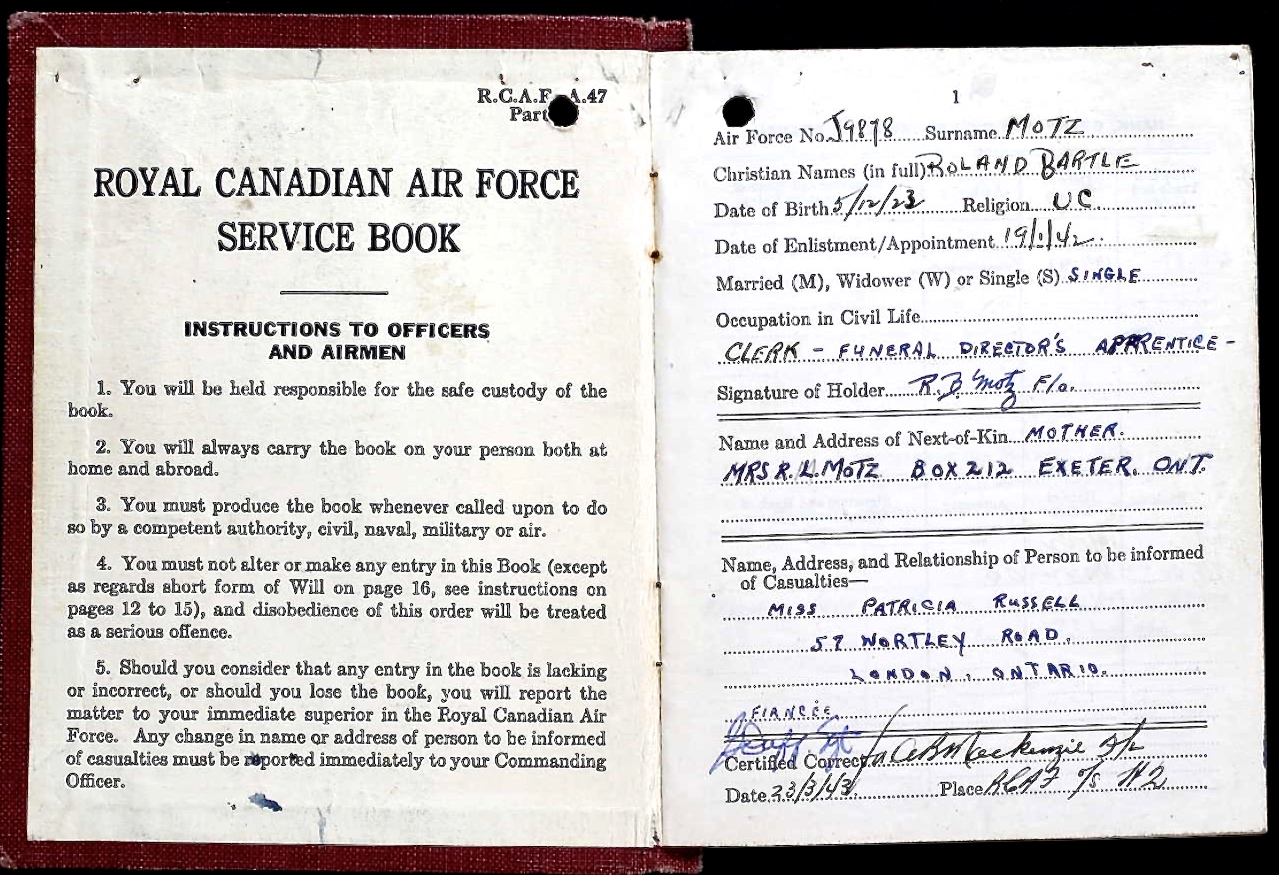 R.C.A.F. A.47
Part
ROYAL CANADIAN AIR FORCE
SERVICE BOOK
INSTRUCTIONS TO OFFICERS
AND AIRMEN
1. You will be held responsible for the safe custody of the
book.
2. You will always carry the book on your person both at
home and abroad.
3. You must produce the book whenever called upon to do
so by a competent authority, civil, naval, military or air.
4. You must not alter or make any entry in this Book (except
as regards short form of Will on page 16, see instructions on
pages 12 to 15), and disobedience of this order will be treated
as a serious offence.
5. Should you consider that any entry in the book is lacking
or incorrect, or should you lose the book, you will report the
matter to your immediate superior in the Royal Canadian Air
Force. Any change in name or address of person to be informed
of casualties must be reported immediately to your Commanding
Officer.
1
Air Force No. J9878 Surname MOTZ
Christian Names (in full) ROLAND BARTLE
Date of Birth 5/12/23 Religion UC
Date of Enlistment/Appointment 19/1/42
Married (M), Widower (W) or Single (S) SINGLE
Occupation in Civil Life
CLERK - FUNERAL DIRECTOR'S APPRENTICE -
Signature of Holder R.B Motz F/o.
Name and Address of Next-of-Kin MOTHER.
MRS R.L. MOTZ BOX 212 EXETER. ONT.
Name, Address, and Relationship of Person to be informed
of Casualties—
MISS PATRICIA RUSSELL
57 WORTLEY ROAD,
LONDON, ONTARIO.
FIANCÉE
Certified Correct Mackenzie
Date 23/3/43 Place RCAF